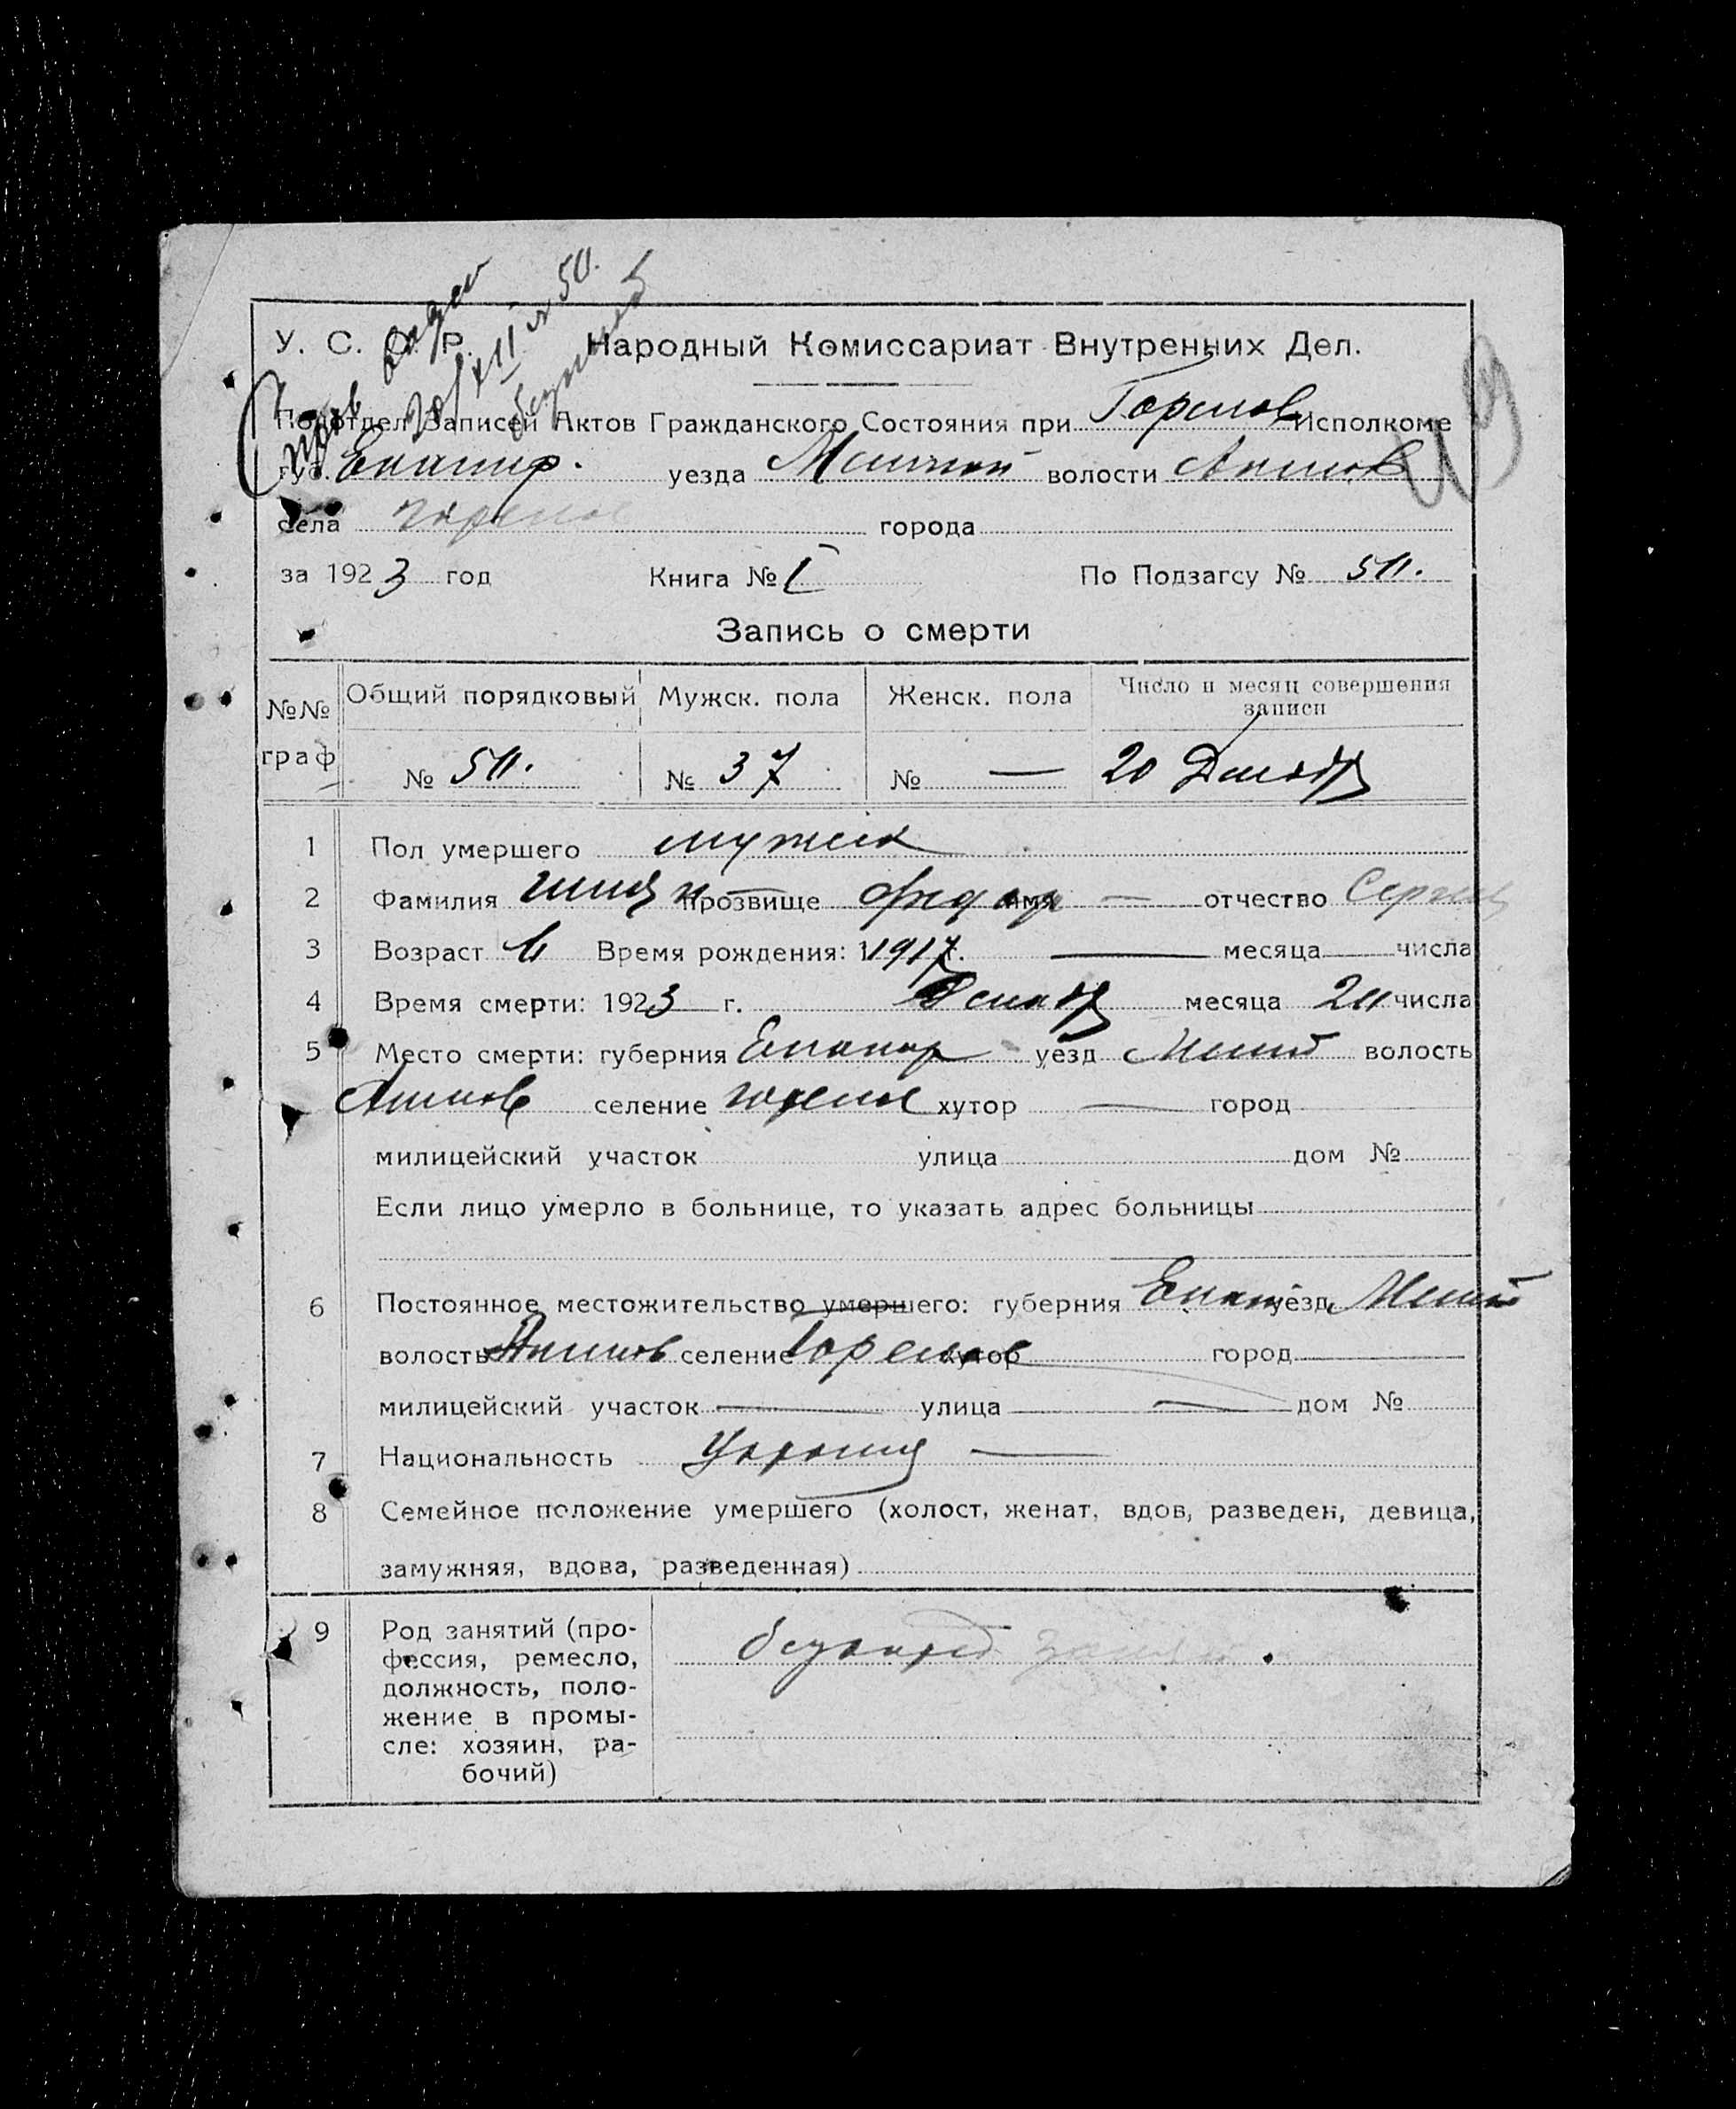 У. С. С. Р. Народный Комиссариат Внутренних Дел.
20/XII № 50.
Подотдел Записей Актов Гражданского Состояния при Горелов Исполкоме
губ. Екатир. уезда волости Акимов
села Горелое города
за 1923 год Книга № I По Подзагсу № 50.
Запись о смерти
№№ граф Общий порядковый Мужск. пола Женск. пола Число и месяц совершения записи
№ 50. № 37 № — 20 Декабр
1 Пол умершего мужск
2 Фамилия прозвище Федор имя — отчество Сергее
3 Возраст 6 Время рождения: 1917 г. — месяца числа
4 Время смерти: 1923 г. Декабр месяца 20 числа
5 Место смерти: губерния Екатир уезд Мелит волость
Акимов селение Горелое хутор — город
милицейский участок улица дом №
Если лицо умерло в больнице, то указать адрес больницы
6 Постоянное местожительство умершего: губерния Екат уезд Мелит
волость Акимов селение Горелое хутор город
милицейский участок — улица — дом №
7 Национальность Украинц —
8 Семейное положение умершего (холост, женат, вдов, разведен, девица,
замужняя, вдова, разведенная)
9 Род занятий (про-
фессия, ремесло,
должность, поло-
жение в промы-
сле: хозяин, ра-
бочий)